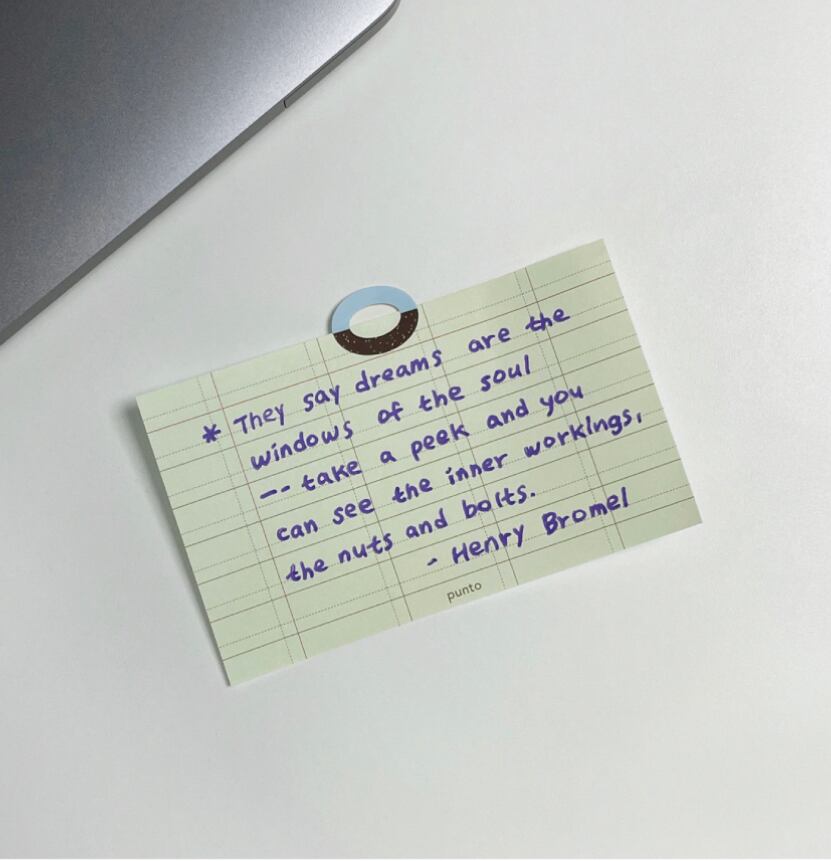 * They say dreams are the
windows of the soul
-- take a peek and you
can see the inner workings,
the nuts and bolts.
- Henry Bromel
punto